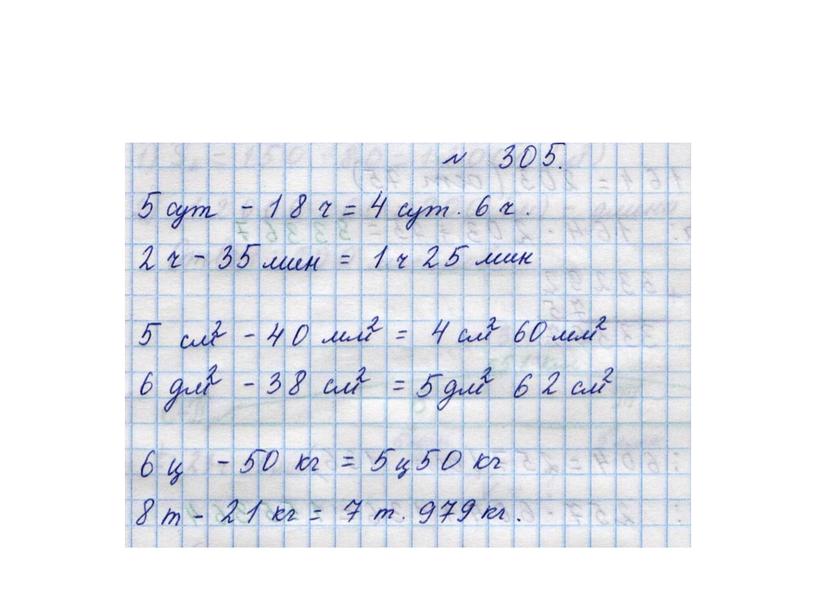 № 305.
5 сут - 18 ч = 4 сут. 6 ч.
2 ч - 35 мин = 1 ч 25 мин
5 см² - 40 мм² = 4 см² 60 мм²
6 дм² - 38 см² = 5 дм² 62 см²
6 ц - 50 кг = 5 ц 50 кг
8 т - 21 кг = 7 т. 979 кг.